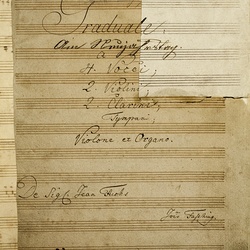 Graduale.
Am Neujahrstag
a
4. Voci;
2. Violini;
2. Clarini;
Tympani;
Violone et Organo.
De Sig: Jean Fuchs